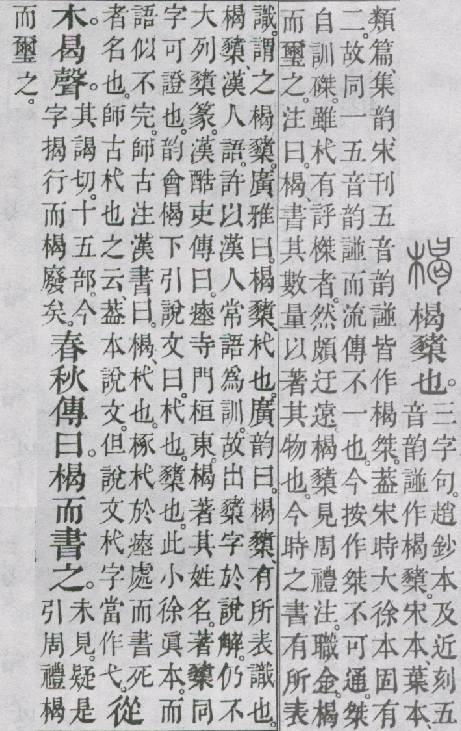 楬 楬櫫也。三字句。趙鈔本及近刻五
音韵譜作楬櫫。宋本、葉本、
類篇、集韵、宋刊五音韵譜皆作楬桀。葢宋時大徐本固有
二。故同一五音韵譜而流傳不一也。今按作桀不可通。桀
自訓磔。雖杙有評榤者。然頗迂遠。楬櫫見周禮注。職金。楬
而璽之。注曰。楬、書其數量以著其物也。今時之書有所表
識謂之楬櫫。廣雅曰。楬櫫、杙也。廣韵曰。楬櫫、有所表識也。
楬櫫、漢人語。許以漢人常語爲訓。故出櫫字於說解。仍不
大列櫫篆。漢酷吏傳曰。瘞寺門桓東。楬著其姓名。著櫫同
字可證也。韵會楬下引說文曰。杙也。櫫也。此小徐眞本。而
語似不完。師古注漢書曰。楬、杙也。椓杙於瘞處而書死
者名也。師古杙也之云、葢本說文。但說文杙字當作弋。從
木曷聲。其謁切。十五部。今
字揭行而楬廢矣。春秋傳曰。楬而書之。未見。疑是
引周禮楬
而璽之。